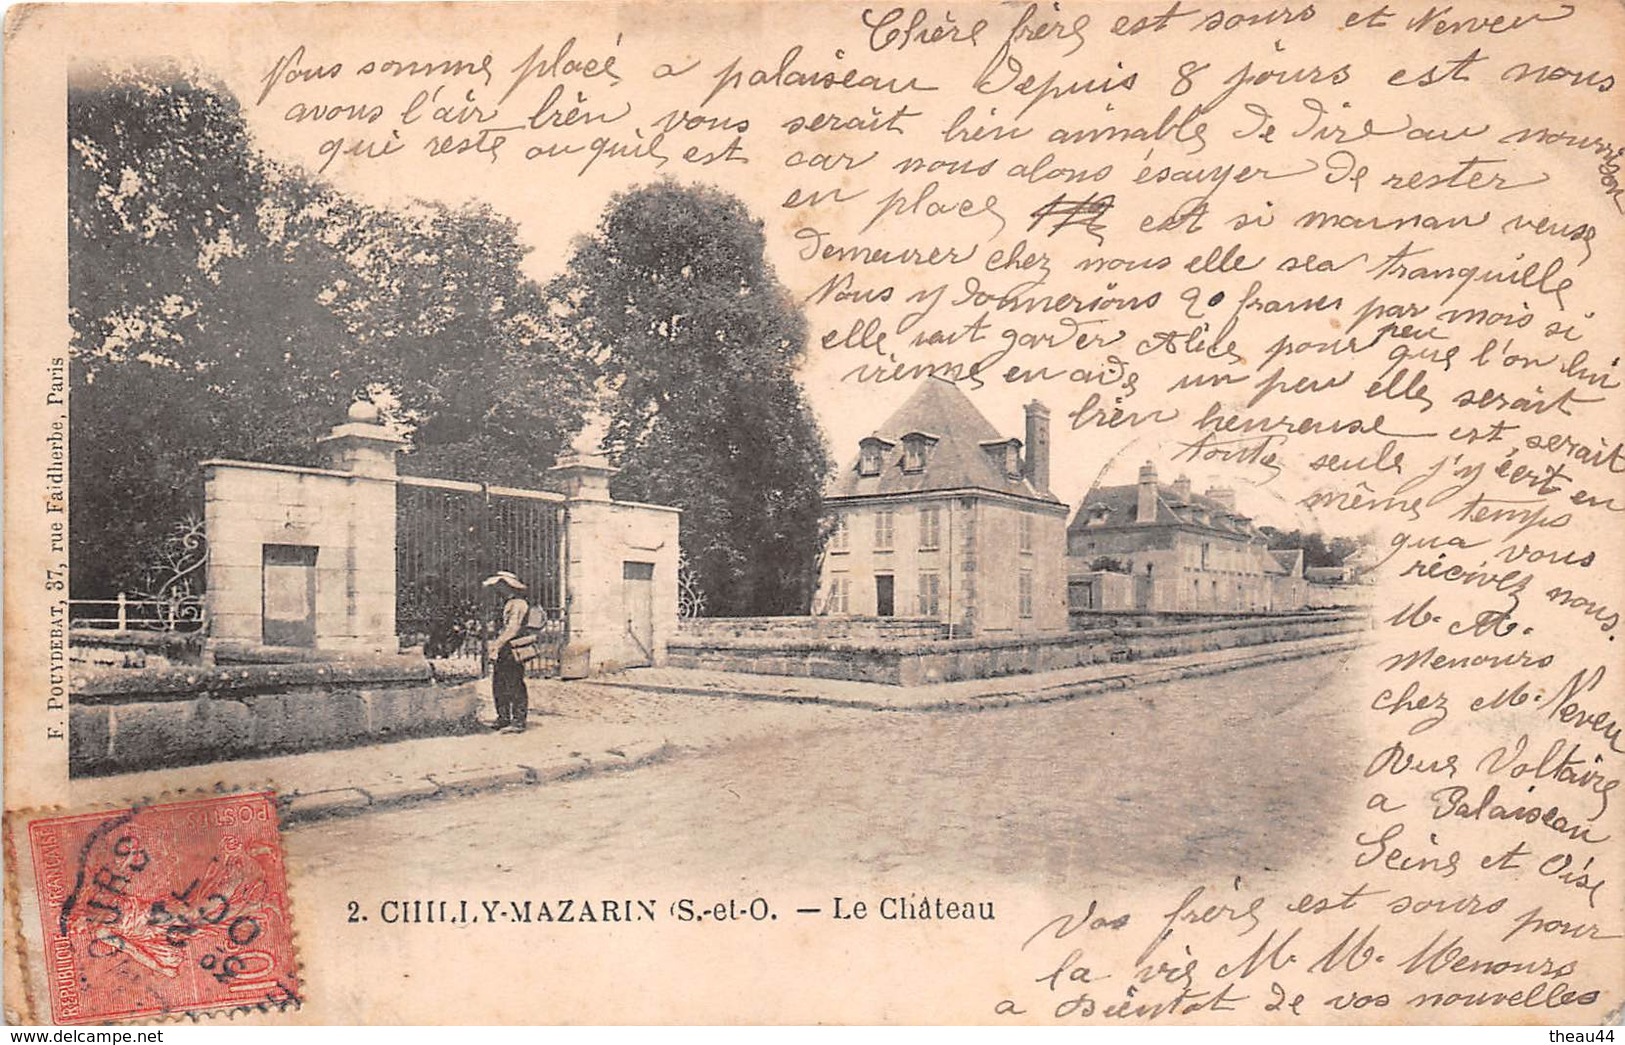 Chère frère est sours et Neveu
Nous somme placé a palaiseau Depuis 8 jours est nous
avous l'air bièn vous serait bièn aimable De Dire au nourrison
qui reste ou quil est car nous alons ésayer De rester
en place est si maman veuse
Demeurer chez nous elle sea tranquille
Nous y Donnerions 20 francs par mois si
elle vait garder Alice pour peu que l'on lui
vienne en aide un peu elle serait
bièn heureuse est serait
toute seule j'y écrit en
même temps
qua vous
récrivez nous.
M. M.
Menours
chez M. Neveu
Rue Voltaire
a Palaiseau
Seine et Oise
Vos frère est sours pour
la vie M. M. Menours
a Bientot de vos nouvelles
F. POUYDEBAT, 37, rue Faidherbe, Paris
2. CHILLY-MAZARIN (S.-et-O. — Le Château
POSTES
REPUBLIQUE FRANÇAISE
10
OCT
theau44